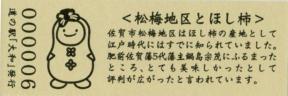 道の駅「大和」発行
000006
<松梅地区とほし柿>
佐賀市松梅地区はほし柿の産地として
江戸時代にはすでに知られていました。
肥前佐賀藩5代藩主鍋島宗茂にふるまった
ところ、とても美味しかったとして
評判が広がったと言われています。